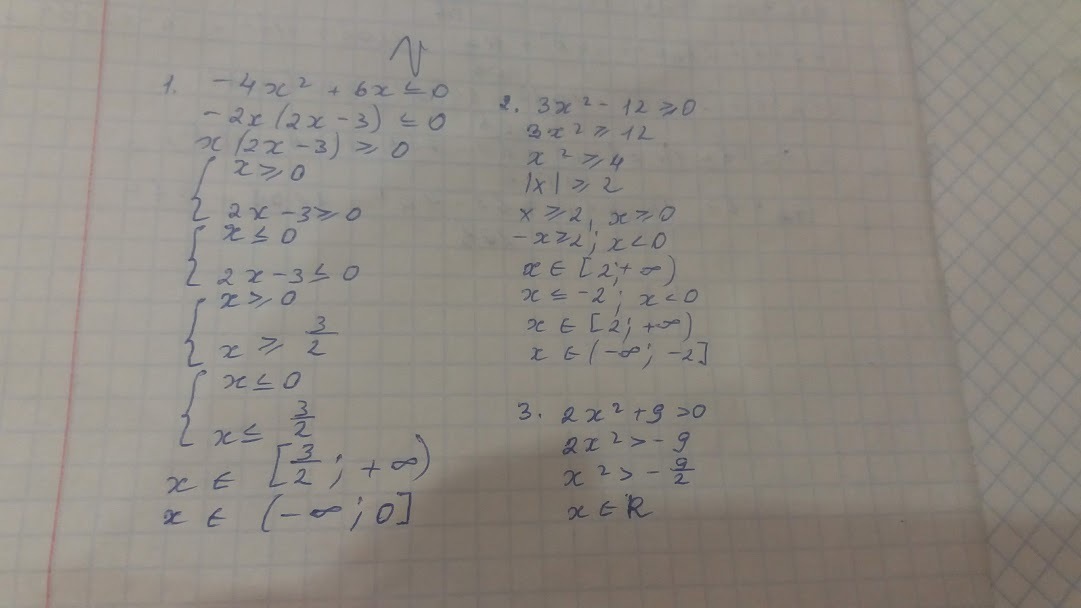 N
1. -4x² + 6x ≤ 0
-2x(2x-3) ≤ 0
x(2x-3) ≥ 0
{ x ≥ 0
2x-3 ≥ 0
{ x ≤ 0
2x-3 ≤ 0
{ x ≥ 0
x ≥ 3/2
{ x ≤ 0
x ≤ 3/2
x ∈ [3/2; +∞)
x ∈ (-∞; 0]
2. 3x² - 12 ≥ 0
3x² ≥ 12
x² ≥ 4
|x| ≥ 2
x ≥ 2, x ≥ 0
-x ≥ 2; x < 0
x ∈ [2; +∞)
x ≤ -2; x < 0
x ∈ [2; +∞)
x ∈ (-∞; -2]
3. 2x² + 9 > 0
2x² > -9
x² > -9/2
x ∈ R